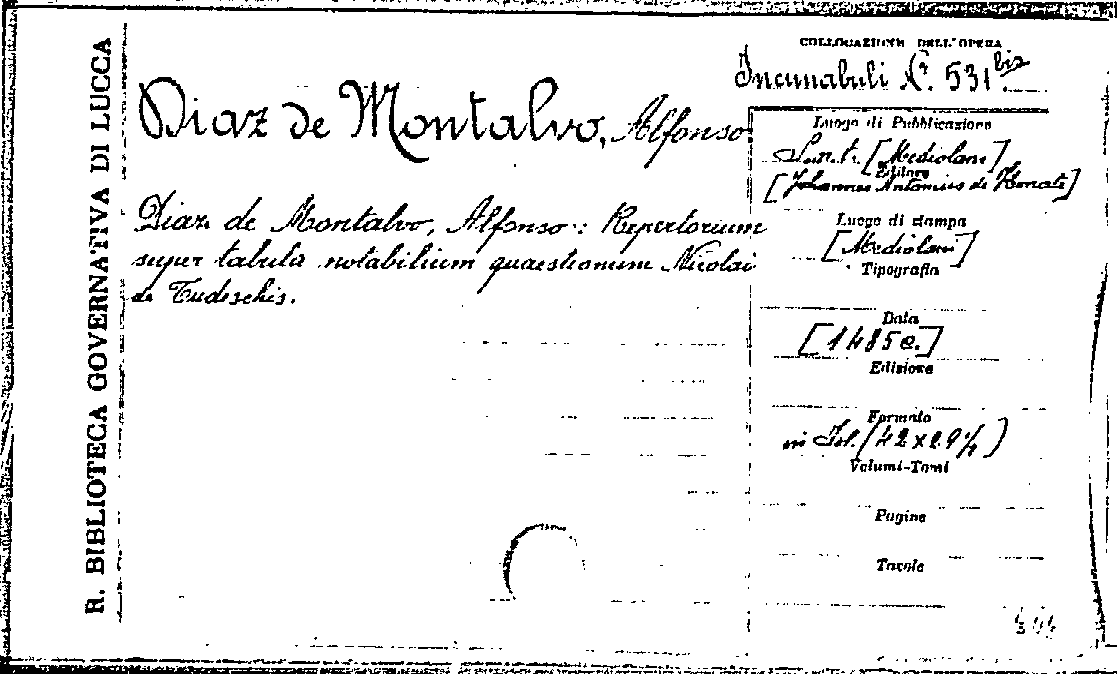 R. BIBLIOTECA GOVERNATIVA DI LUCCA
COLLOCAZIONE DELL'OPERA
Incunabuli N.º 531 bis
Diaz de Montalvo, Alfonso
Diaz de Montalvo, Alfonso: Repertorium
super tabula notabilium quaestionum Nicolai
de Tudeschis.
Luogo di Pubblicazione
S.n.t. [Mediolani]
Editore
[Johannes Antonius de Honate]
Luogo di stampa
[Mediolani]
Tipografia
Data
[1485c.]
Edizione
Formato
in fol. (42x29
Volumi-Tomi
Pagine
Tavole